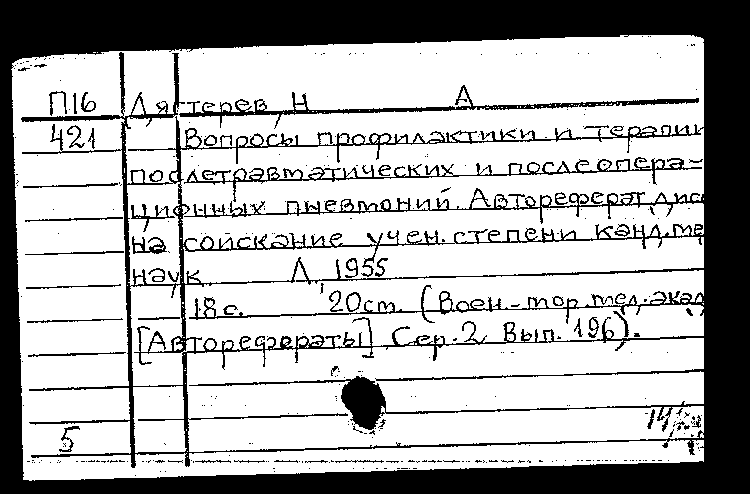 П16 Дягтерев, Н А
421 Вопросы профилактики и терапии
послетравматических и послеопера-
ционных пневмоний. Автореферат дис
на соискание учен. степени канд. ме
наук. Л., 1955
18 с. 20 см. (Воен.-мор. мед. акад.
[Авторефераты] Сер. 2 Вып. 196).
5